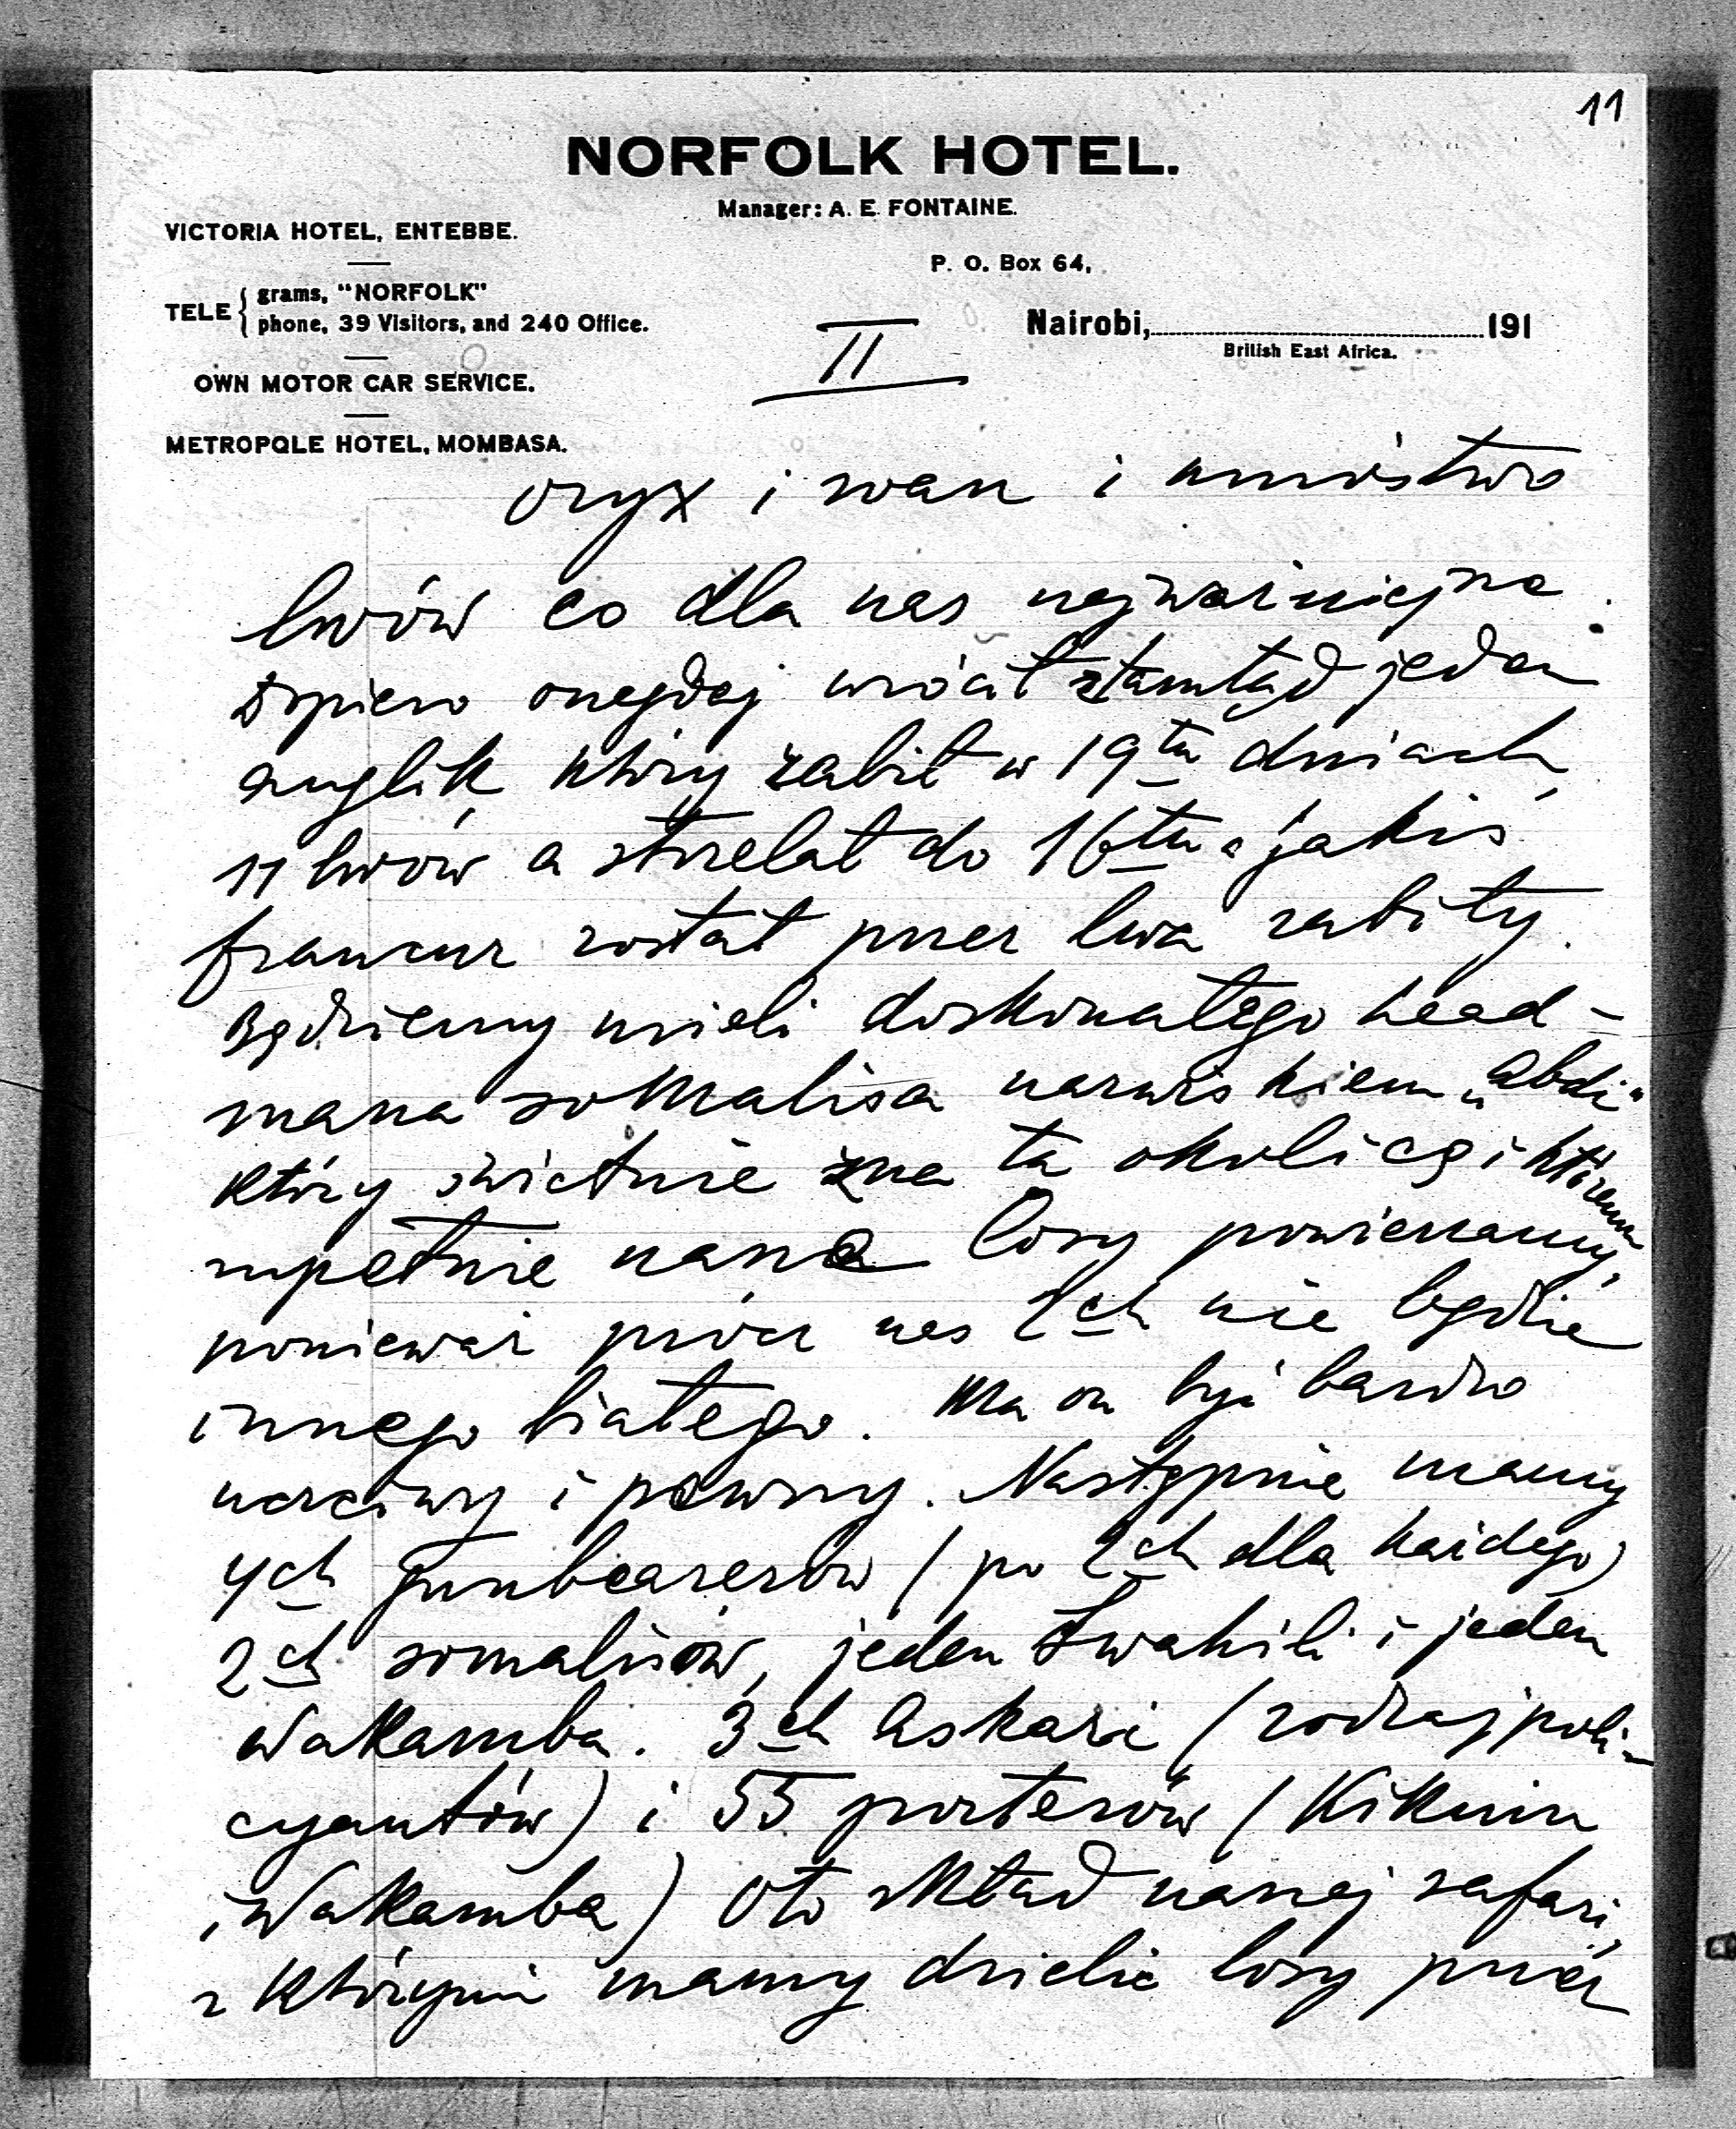 11
NORFOLK HOTEL.
Manager: A. E. FONTAINE.
VICTORIA HOTEL, ENTEBBE.
P. O. Box 64,
TELE { grams, "NORFOLK"
phone, 39 Visitors, and 240 Office.
Nairobi, 191
British East Africa.
II
OWN MOTOR CAR SERVICE.
METROPOLE HOTEL, MOMBASA.
oryx i wan i mnóstwo
lwów co dla nas najważniejsze.
Dopiero onegdaj wrócił stamtąd jeden
anglik, który zabił w 19tu dniach,
11 lwów a strzelał do 16tu a jakiś
francuz został przez lwa zabity.
Będziemy mieli doskonałego head-
mana somalisa nazwiskiem „Abdi"
który świetnie zna tą okolicę i któremu
zupełnie nasze losy powierzamy,
ponieważ prócz nas 2ch nie będzie
innego białego. Ma on być bardzo
uczciwy i pewny. Następnie mamy
4ch gunbearerów (po 2ch dla każdego)
2ch somalisów, jeden Swahili i jeden
Wakamba. 3ch Askari (rodzaj poli-
cyantów) i 55 porterów (Kikuiu
i Wakamba) Oto skład naszej safari,
z którymi mamy dzielić losy przez